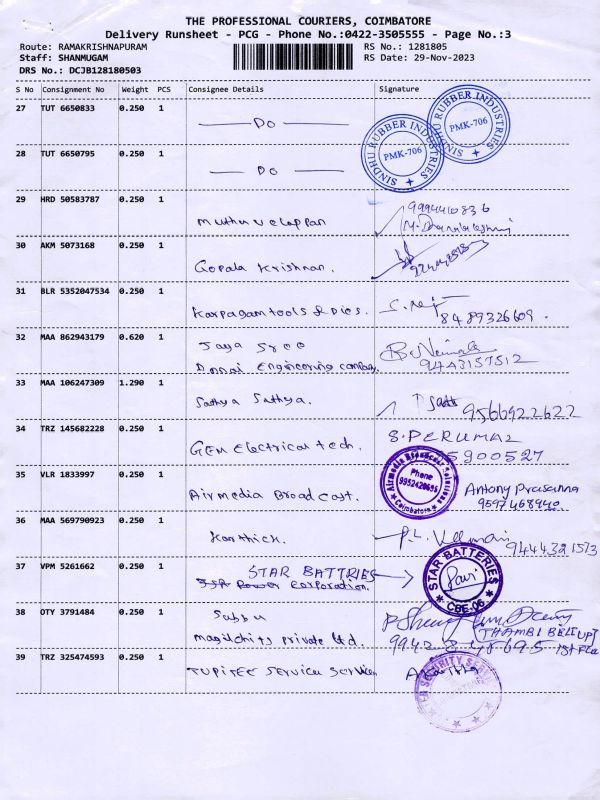 THE PROFESSIONAL COURIERS, COIMBATORE
Delivery Runsheet - PCG - Phone No.:0422-3505555 - Page No.:3
Route: RAMAKRISHNAPURAM
RS No.: 1281805
Staff: SHANMUGAM
RS Date: 29-Nov-2023
DRS No.: DCJB128180503
S No Consignment No Weight PCS Consignee Details Signature
27 TUT 6650833 0.250 1
Do
SINDHU RUBBER INDUSTRIES
PMK-706
28 TUT 6650795 0.250 1
Do
SINDHU RUBBER INDUSTRIES
PMK-706
29 HRD 50583787 0.250 1
muthu velappan
9994410836
30 AKM 5073168 0.250 1
Gopala Krishnan.
31 BLR 5352047534 0.250 1
Karpagam tools & dies.
8489326609.
32 MAA 862943179 0.620 1
Jaya Sree
Engineering
9443157512
33 MAA 106247309 1.290 1
Sathya Sathya.
9566922622
34 TRZ 145682228 0.250 1
GEM Electrical tech.
S. PERUMAL
35 VLR 1833997 0.250 1
Airmedia Broad cast.
Airmedia Broadcast Solutions
Phone
Coimbatore
Antony Prasanna
9597468940
36 MAA 569790923 0.250 1
Karthick
37 VPM 5261662 0.250 1
STAR BATTRIES
Power Corporation.
STAR BATTERIES
CBE-06
38 OTY 3791484 0.250 1
Subbu
Magilchits private ltd.
THAMBI
39 TRZ 325474593 0.250 1
JUPITEE Service Services
SECURITY